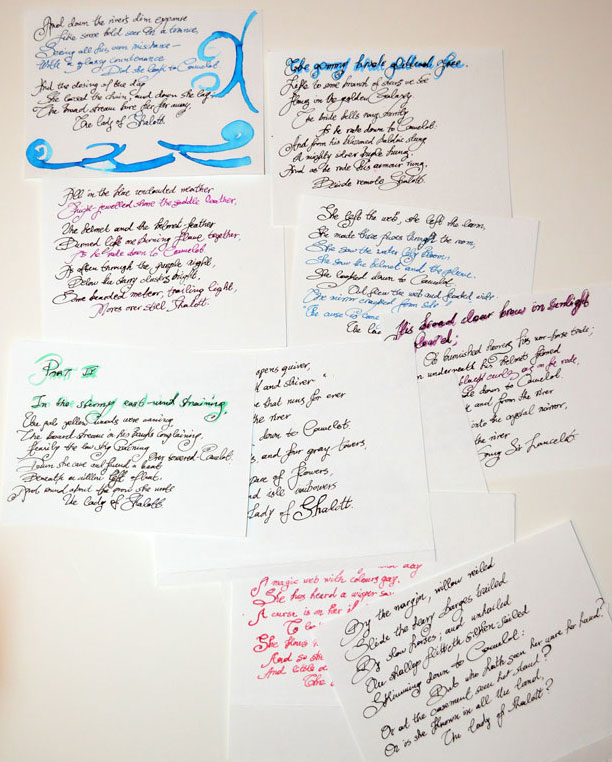 And down the river's dim expanse
Like some bold seer in a trance,
Seeing all his own mischance –
With a glassy countenance
Did she look to Camelot.
And the closing of the day
She loosed the chain, and down she lay
The broad stream bore her far away,
The lady of Shalott.
The gemmy bridle glitter'd free.
Like to some branch of stars we see
Hung in the golden Galaxy
The bridle bells rang merrily
As he rode down to Camelot.
And from his blazoned baldric slung
A mighty silver bugle hung
And as he rode his armour rung,
Beside remote Shalott.
All in the blue unclouded weather
Thick-jewelled shone the saddle leather,
The helmet and the helmet feather
Burned like one burning flame together,
As he rode down to Camelot.
As often through the purple night,
Below the starry clusters bright,
Some bearded meteor, trailing light,
Moves over still Shalott.
She left the web, she left the loom,
She made three paces through the room,
She saw the water lily bloom,
She saw the helmet and the plume.
She looked down to Camelot.
Out flew the web and floated wide
The mirror cracked from side
The curse is come
The La
His broad clear brow in sunlight
burnished hooves his war-horse trode;
underneath his helmet flowed
black curls as on he rode,
down to Camelot.
and from the river
into the crystal mirror,
the river
Sang Sir Lancelot
Part IV
In the stormy east-wind straining,
The pale yellow woods were waning
The broad stream in his banks complaining.
Heavily the low sky raining
Over towered Camelot.
Down she came and found a boat
Beneath a willow left afloat.
And round about the prow she wrote
The lady of Shalott
quiver,
and shiver
that runs for ever
the river
down to Camelot.
and four gray towers,
space of flowers,
isle embowers
Lady of Shalott.
A magic web with colours gay.
She has heard a wisper
A curse is on her
To
She knows
And so
And little
The
By the margin, willow veiled
Slide the heavy barges trailed
By slow horses; and unhailed
The shallop flitteth silken sailed
Skimming down to Camelot:
But who hath seen her wave her hand?
Or at the casement seen her stand?
Or is she known in all the land,
The lady of Shalott?